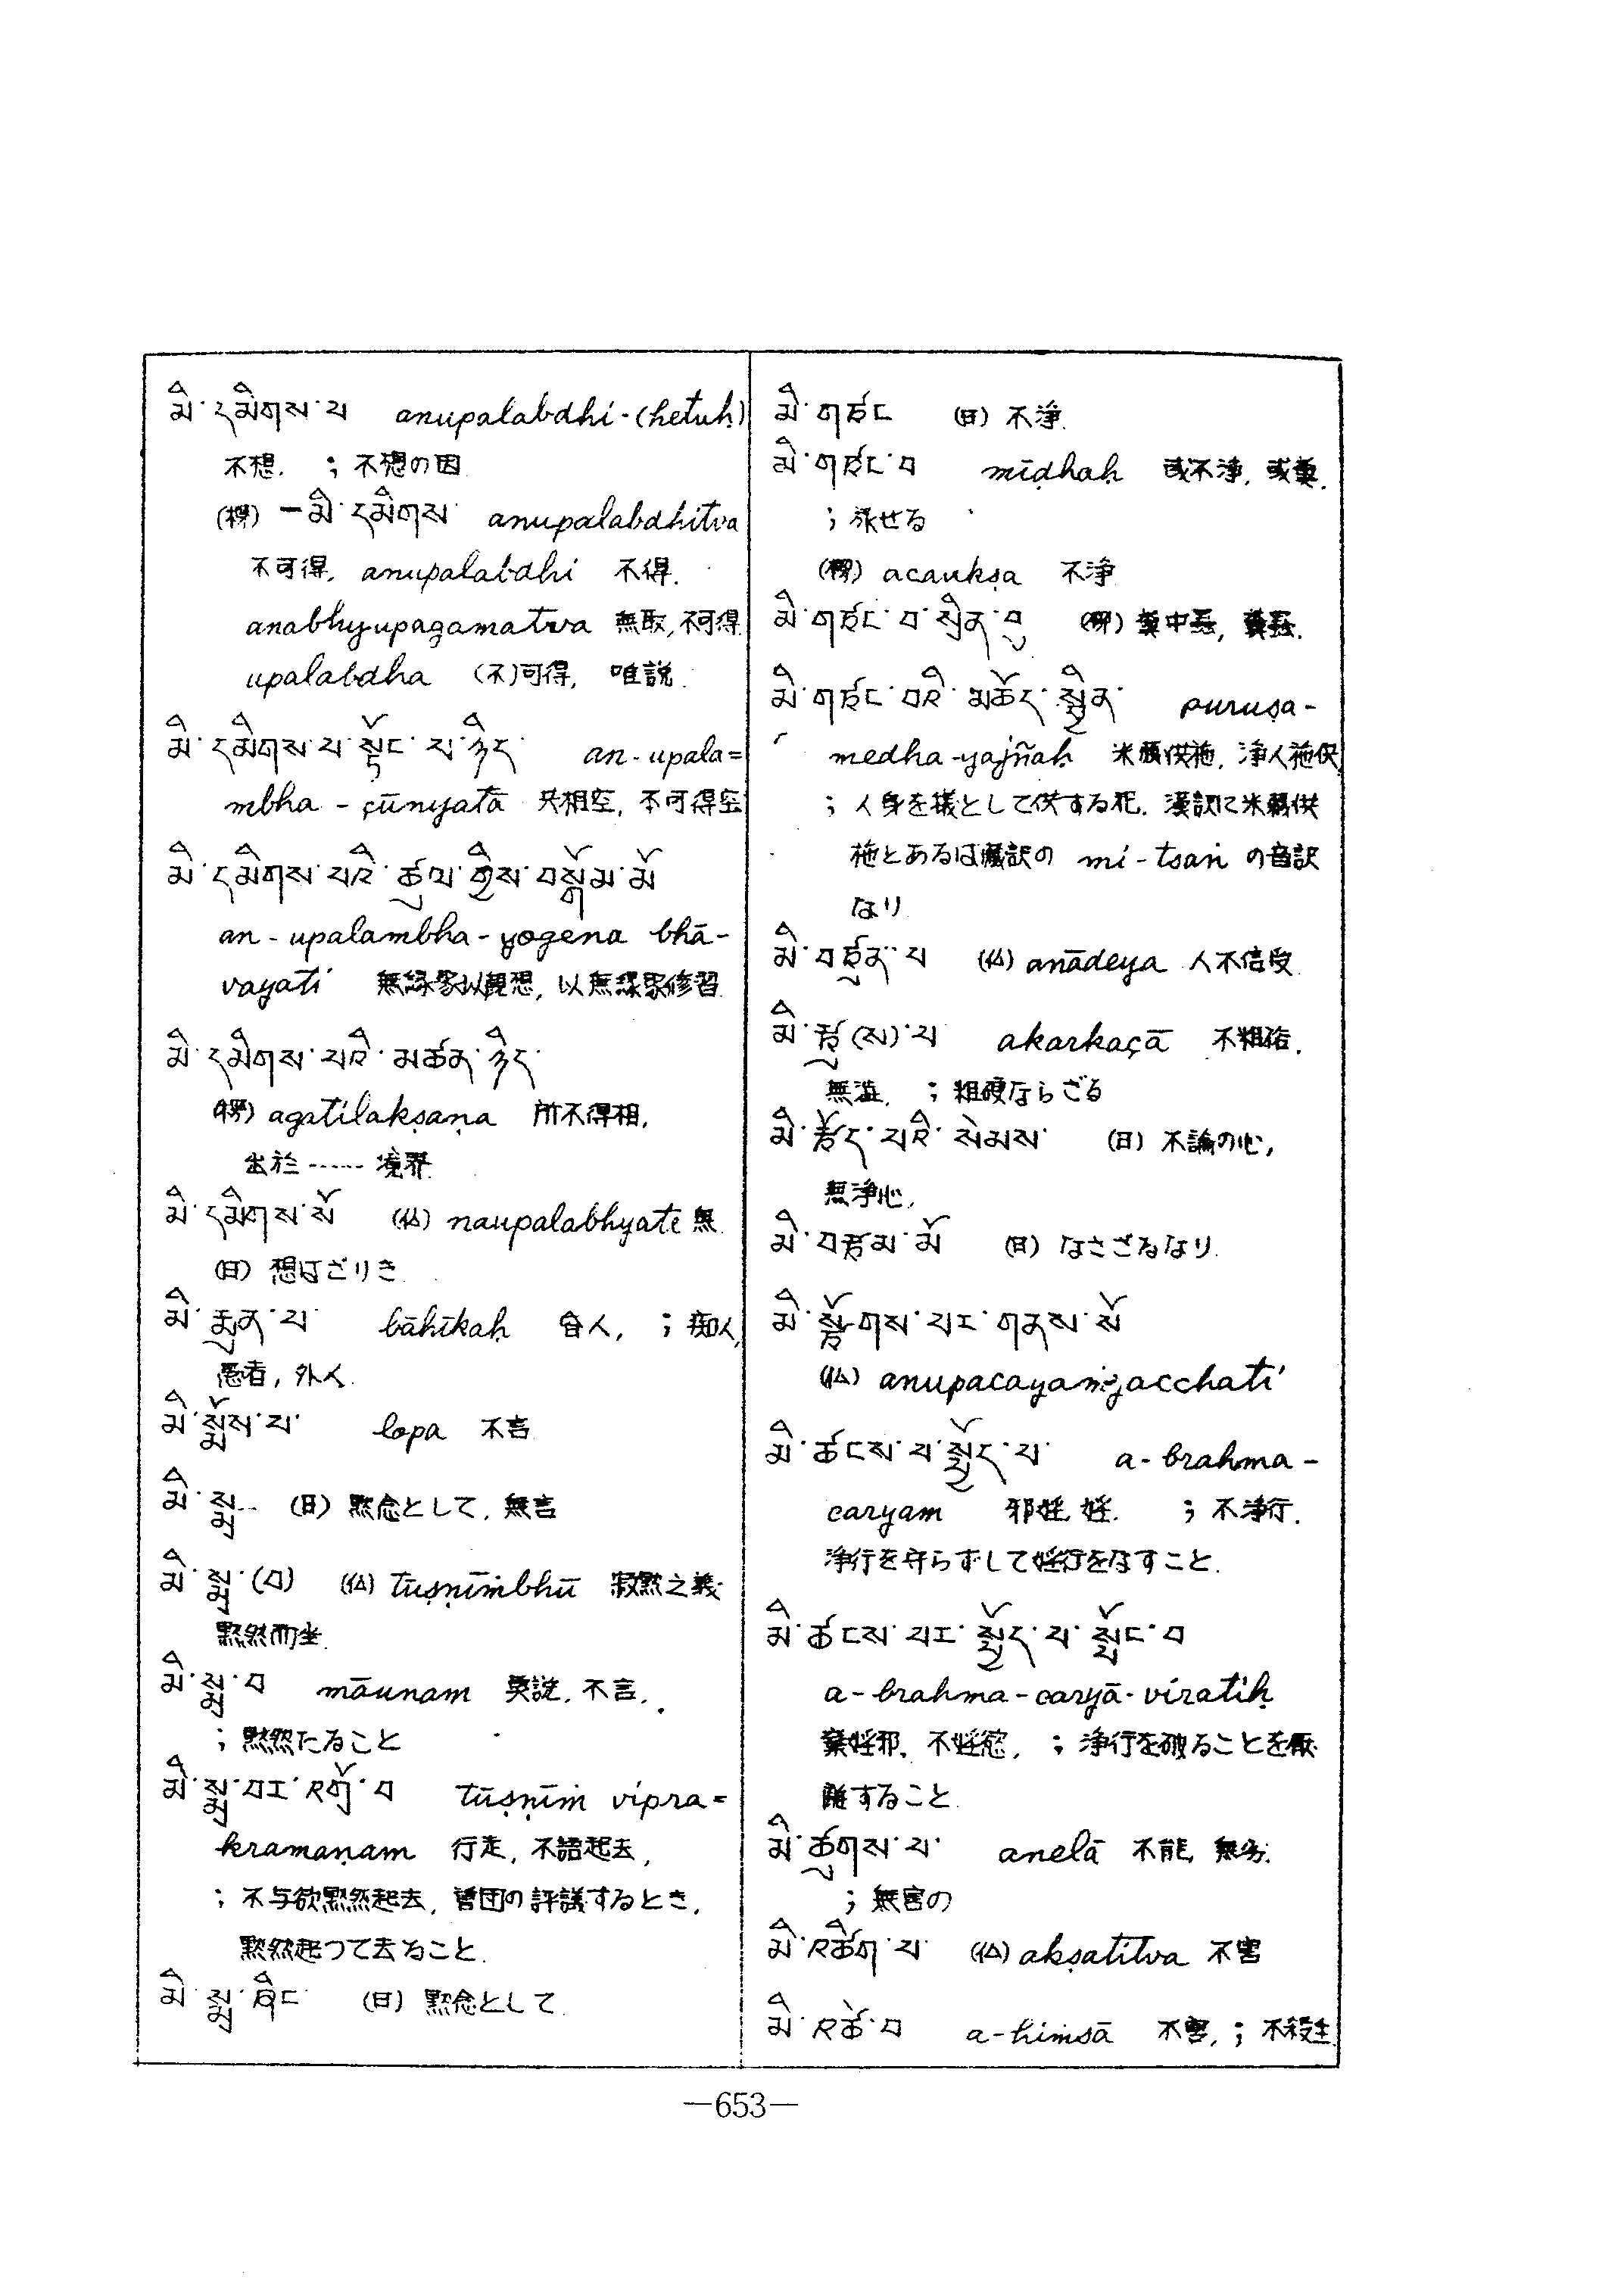 མི་དམིགས་པ anupalabdhi-(hetuḥ)
不想. ; 不想の因
(楞) ーམི་དམིགས་ anupalabdhitva
不可得, anupalabdhi 不得.
anabhyupagamatva 無取, 不可得
upalabdha (不)可得, 唯説.
མི་དམིགས་པ་སྟོང་པ་ཉིད་ an-upala=
mbha-çūnyatā 共相空, 不可得空
མི་དམིགས་པའི་ཚུལ་གྱིས་བསྒོམ་མོ
an-upalambha-yogena bhā-
vayati 無縁家以觀想, 以無縁家修習
མི་དམིགས་པའི་མཚན་ཉིད་
(楞) agatilakṣaṇa 所不得相,
出於……境界
མི་དམིགས་སོ (仏) naupalabhyate 無
(日) 想はざりき
མི་རྨུན་པ་ bāhīkaḥ 人, ; 痴人,
愚者, 外人.
མི་སྨོས་པ་ lopa 不言
མི་སྨྲ… (日) 黙念として, 無言
མི་སྨྲ་(བ) (仏) tūṣṇīṃbhū 寂黙之義
黙然而坐.
མི་སྨྲ་བ māunam 莫説, 不言.
; 黙然たること
མི་སྨྲ་བར་འགྲོ་བ tūṣṇīṁ vipra=
kramaṇam 行走, 不語起去,
; 不与欲黙然起去, 曾団の評議するとき,
黙然起つて去ること.
མི་སྨྲ་ཞིང་ (日) 黙念として.
མི་གཙང (日) 不淨.
མི་གཙང་བ mīḍhaḥ 或不淨, 或糞.
; 放せる
(楞) acaukṣa 不淨
མི་གཙང་བ་སྲིན་བུ (楞) 糞中蟲, 糞蟲.
མི་གཙང་བའི་མཆོད་སྦྱིན་ puruṣa-
medha-yajñaḥ 米蔵供施, 淨人施供,
; 人身を犠として供する祀. 漢訳に米蔵供
施とあるは蔵訳の mi-tsaṅ の音訳
なり
མི་བཙུན་པ (仏) anādeya 人不信受
མི་རྩུ(ས)་པ akarkaçā 不粗,
無澁, ; 粗硬ならざる
མི་རྩོད་པའི་སེམས་ (日) 不論の心,
無淨心,
མི་བརྩམ་མོ (日) なさざるなり
མི་རྩོགས་པར་གནས་སོ
(仏) anupacayaṁgacchati
མི་ཚངས་པ་སྤྱོད་པ་ a-brahma-
caryam 邪婬, 婬. ; 不淨行.
淨行を守らずして婬行をなすこと.
མི་ཚངས་པར་སྤྱོད་པ་སྤྱོང་བ
a-brahma-caryā-viratiḥ
棄婬邪, 不婬慾, ; 淨行を破ることを厭
離すること.
མི་ཚུགས་པ་ anelā 不能, 無.
; 無害の
མི་འཚིག་པ་ (仏) akṣatitva 不害
མི་འཚེ་བ a-hiṁsā 不害, ; 不殺生
—653—